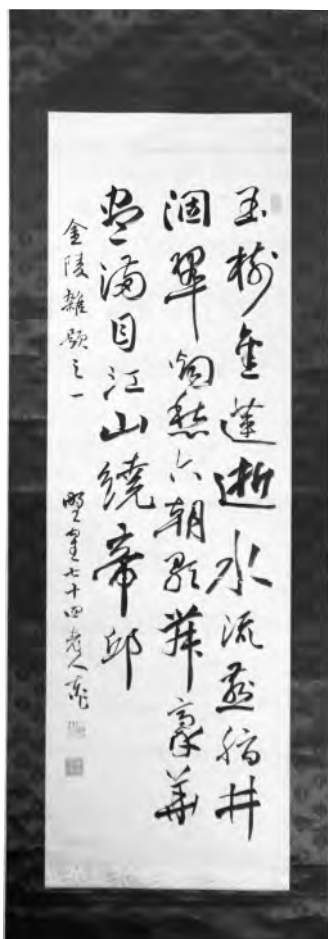 玉樹金蓮逝水流燕脂井
涸翠愁六朝歌舞豪華
盡滿目江山繞帝邱
金陵雜題之一
七十四老人